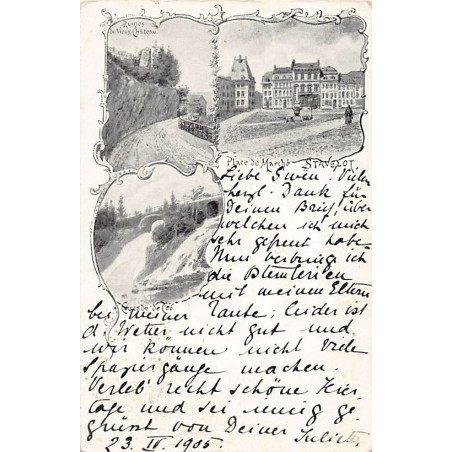 Ruines
du Vieux Château
Place du Marché STAVELOT
Liebe Swen! Vielen
herzl. Dank für
Deinen Brief, über
welchen ich mich
sehr gefreut habe.
Nun verbringe ich
die
mit meinen Eltern
Cascade de Coo
bei meiner Tante; leider ist
d. Wetter nicht gut und
wir können nicht viele
Spaziergänge machen.
Verleb' recht schöne
tage und sei innig ge-
grüsst von Deiner Juliette
23. IV. 1905.